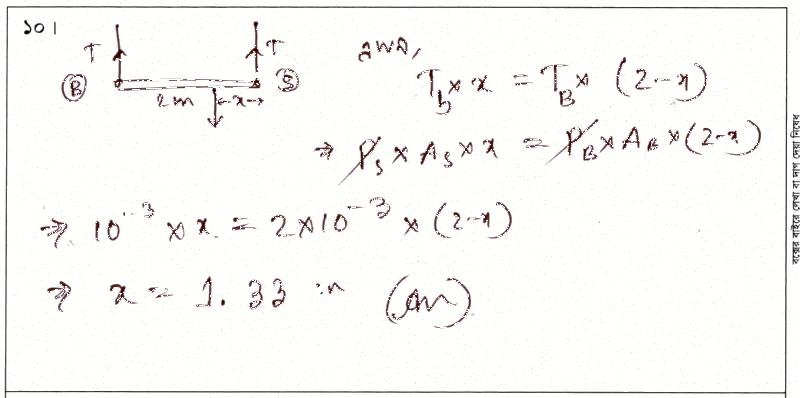 ১০।
T T
B S
2m ←x→
এখন,
T_b × x = T_B × (2-x)
⇒ P_s × A_s × x = P_B × A_B × (2-x)
⇒ 10^-3 × x = 2×10^-3 × (2-x)
⇒ x = 1.33 m (Am)
বক্সের বাইরে লেখা বা দাগ দেয়া নিষেধ